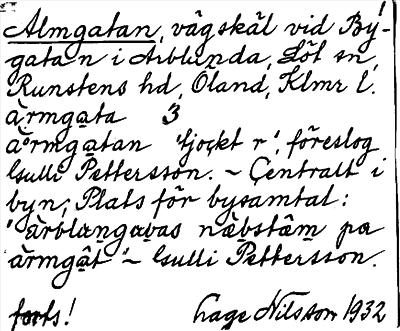 Almgatan, vägskäl vid By-
gatan i Arblunda, Löt sn,
Runstens hd, Öland, Klmr l.
ärmgata 3
ärmgatan 'tjockt r', föreslog
Gulli Pettersson. – Centralt i
byn; Plats för bysamtal:
'ärblangavas näbstäm pa
ärmgât' – Gulli Pettersson.
forts! Lage Nilsson 1932